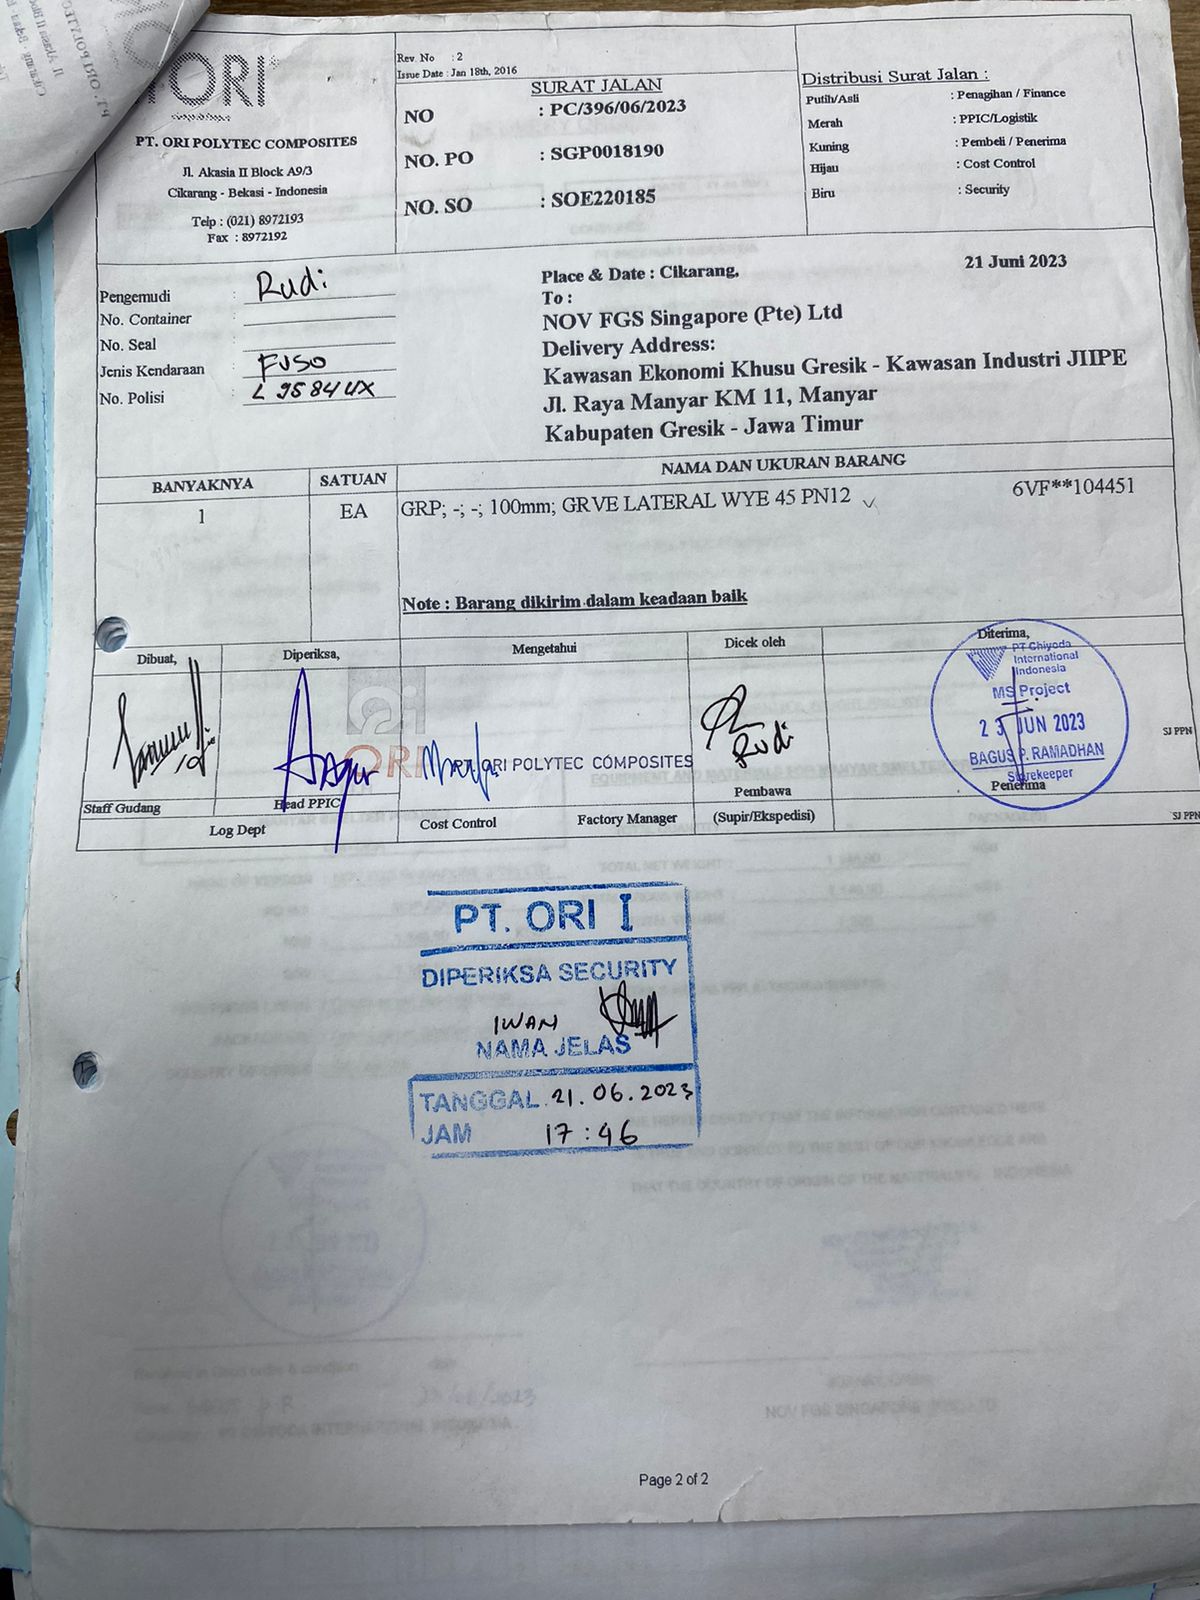 ORI
PT. ORI POLYTEC COMPOSITES
Jl. Akasia II Block A9/3
Cikarang - Bekasi - Indonesia
Telp : (021) 8972193
Fax : 8972192
Rev. No : 2
Issue Date : Jan 18th, 2016
SURAT JALAN
NO : PC/396/06/2023
NO. PO : SGP0018190
NO. SO : SOE220185
Distribusi Surat Jalan :
Putih/Asli : Penagihan / Finance
Merah : PPIC/Logistik
Kuning : Pembeli / Penerima
Hijau : Cost Control
Biru : Security
Pengemudi : Rudi
No. Container :
No. Seal :
Jenis Kendaraan : FUSO
No. Polisi : L 9584 UX
Place & Date : Cikarang, 21 Juni 2023
To :
NOV FGS Singapore (Pte) Ltd
Delivery Address:
Kawasan Ekonomi Khusu Gresik - Kawasan Industri JIIPE
Jl. Raya Manyar KM 11, Manyar
Kabupaten Gresik - Jawa Timur
BANYAKNYA SATUAN NAMA DAN UKURAN BARANG
1 EA GRP; -; -; 100mm; GRVE LATERAL WYE 45 PN12 6VF**104451
Note : Barang dikirim dalam keadaan baik
Dibuat, Diperiksa, Mengetahui Dicek oleh Diterima,
PT Chiyoda
International
Indonesia
MS Project
23 JUN 2023
BAGUS P. RAMADHAN
Storekeeper
ORI
PT. ORI POLYTEC COMPOSITES
Rudi
SJ PPN
Staff Gudang Head PPIC Pembawa Penerima
Log Dept Cost Control Factory Manager (Supir/Ekspedisi)
SJ PPN
PT. ORI I
DIPERIKSA SECURITY
IWAN
NAMA JELAS
TANGGAL 21.06.2023
JAM 17:46
Page 2 of 2